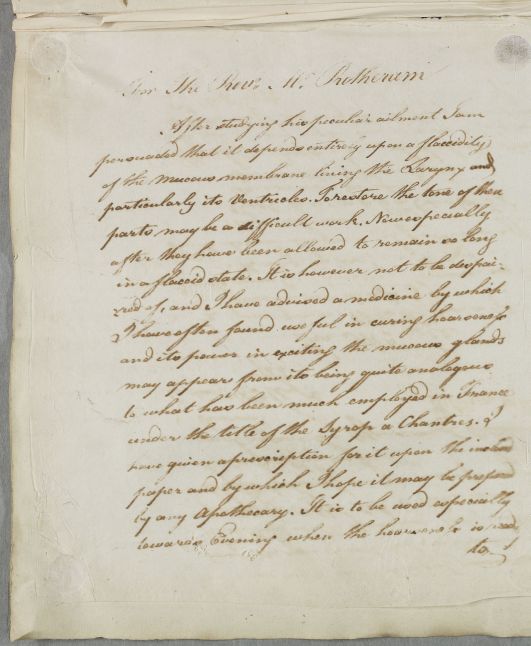 For The Revd. Mr. Rotherum
After studying his peculiar ailment I am
persuaded that it depends entirely upon a flaccidity
of the mucous membrane lining the Larynx and
particularly its Ventricles. To restore the tone of these
parts may be a difficult work. Now especially
after they have been allowed to remain so long
in a flaccid state. It is however not to be despai-
red of, and I have advised a medicine by which
I have often found useful in curing hoarseness
and its power in exciting the mucous glands
may appear from its being quite analogous
to what has been much employed in France
under the title of the Syrop a Chantres. I
have given a prescription for it upon the inclosed
paper and by which I hope it may be prepared
by any Apothecary. It is to be used especially
towards Evening when the hoarseness is ready
to